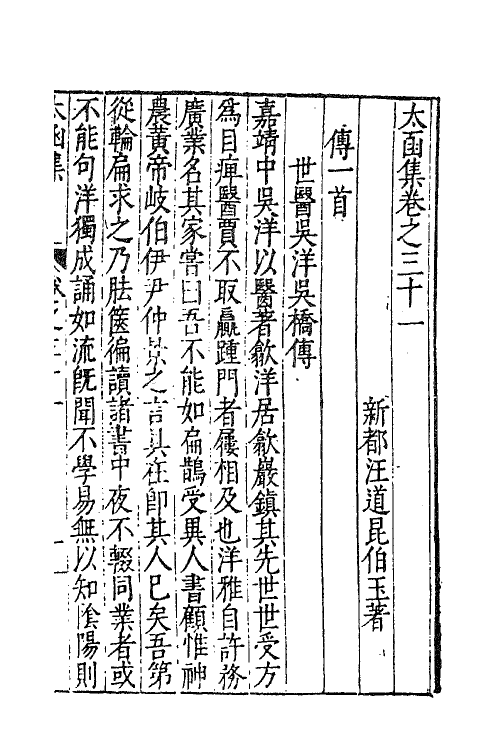 太函集卷之三十一
新都汪道昆伯玉著
傳一首
世醫吳洋吳橋傳
嘉靖中吳洋以醫著歙洋居歙巖鎮其先世世受方
為目痺醫賈不取贏踵門者屨相及也洋雅自許務
廣業名其家嘗曰吾不能如扁鵲受異人書顧惟神
農黃帝岐伯伊尹仲景之言具在卽其人已矣吾第
從輪扁求之乃胠篋徧讀諸書中夜不輟同業者或
不能句洋獨成誦如流旣聞不學易無以知陰陽則
太函集